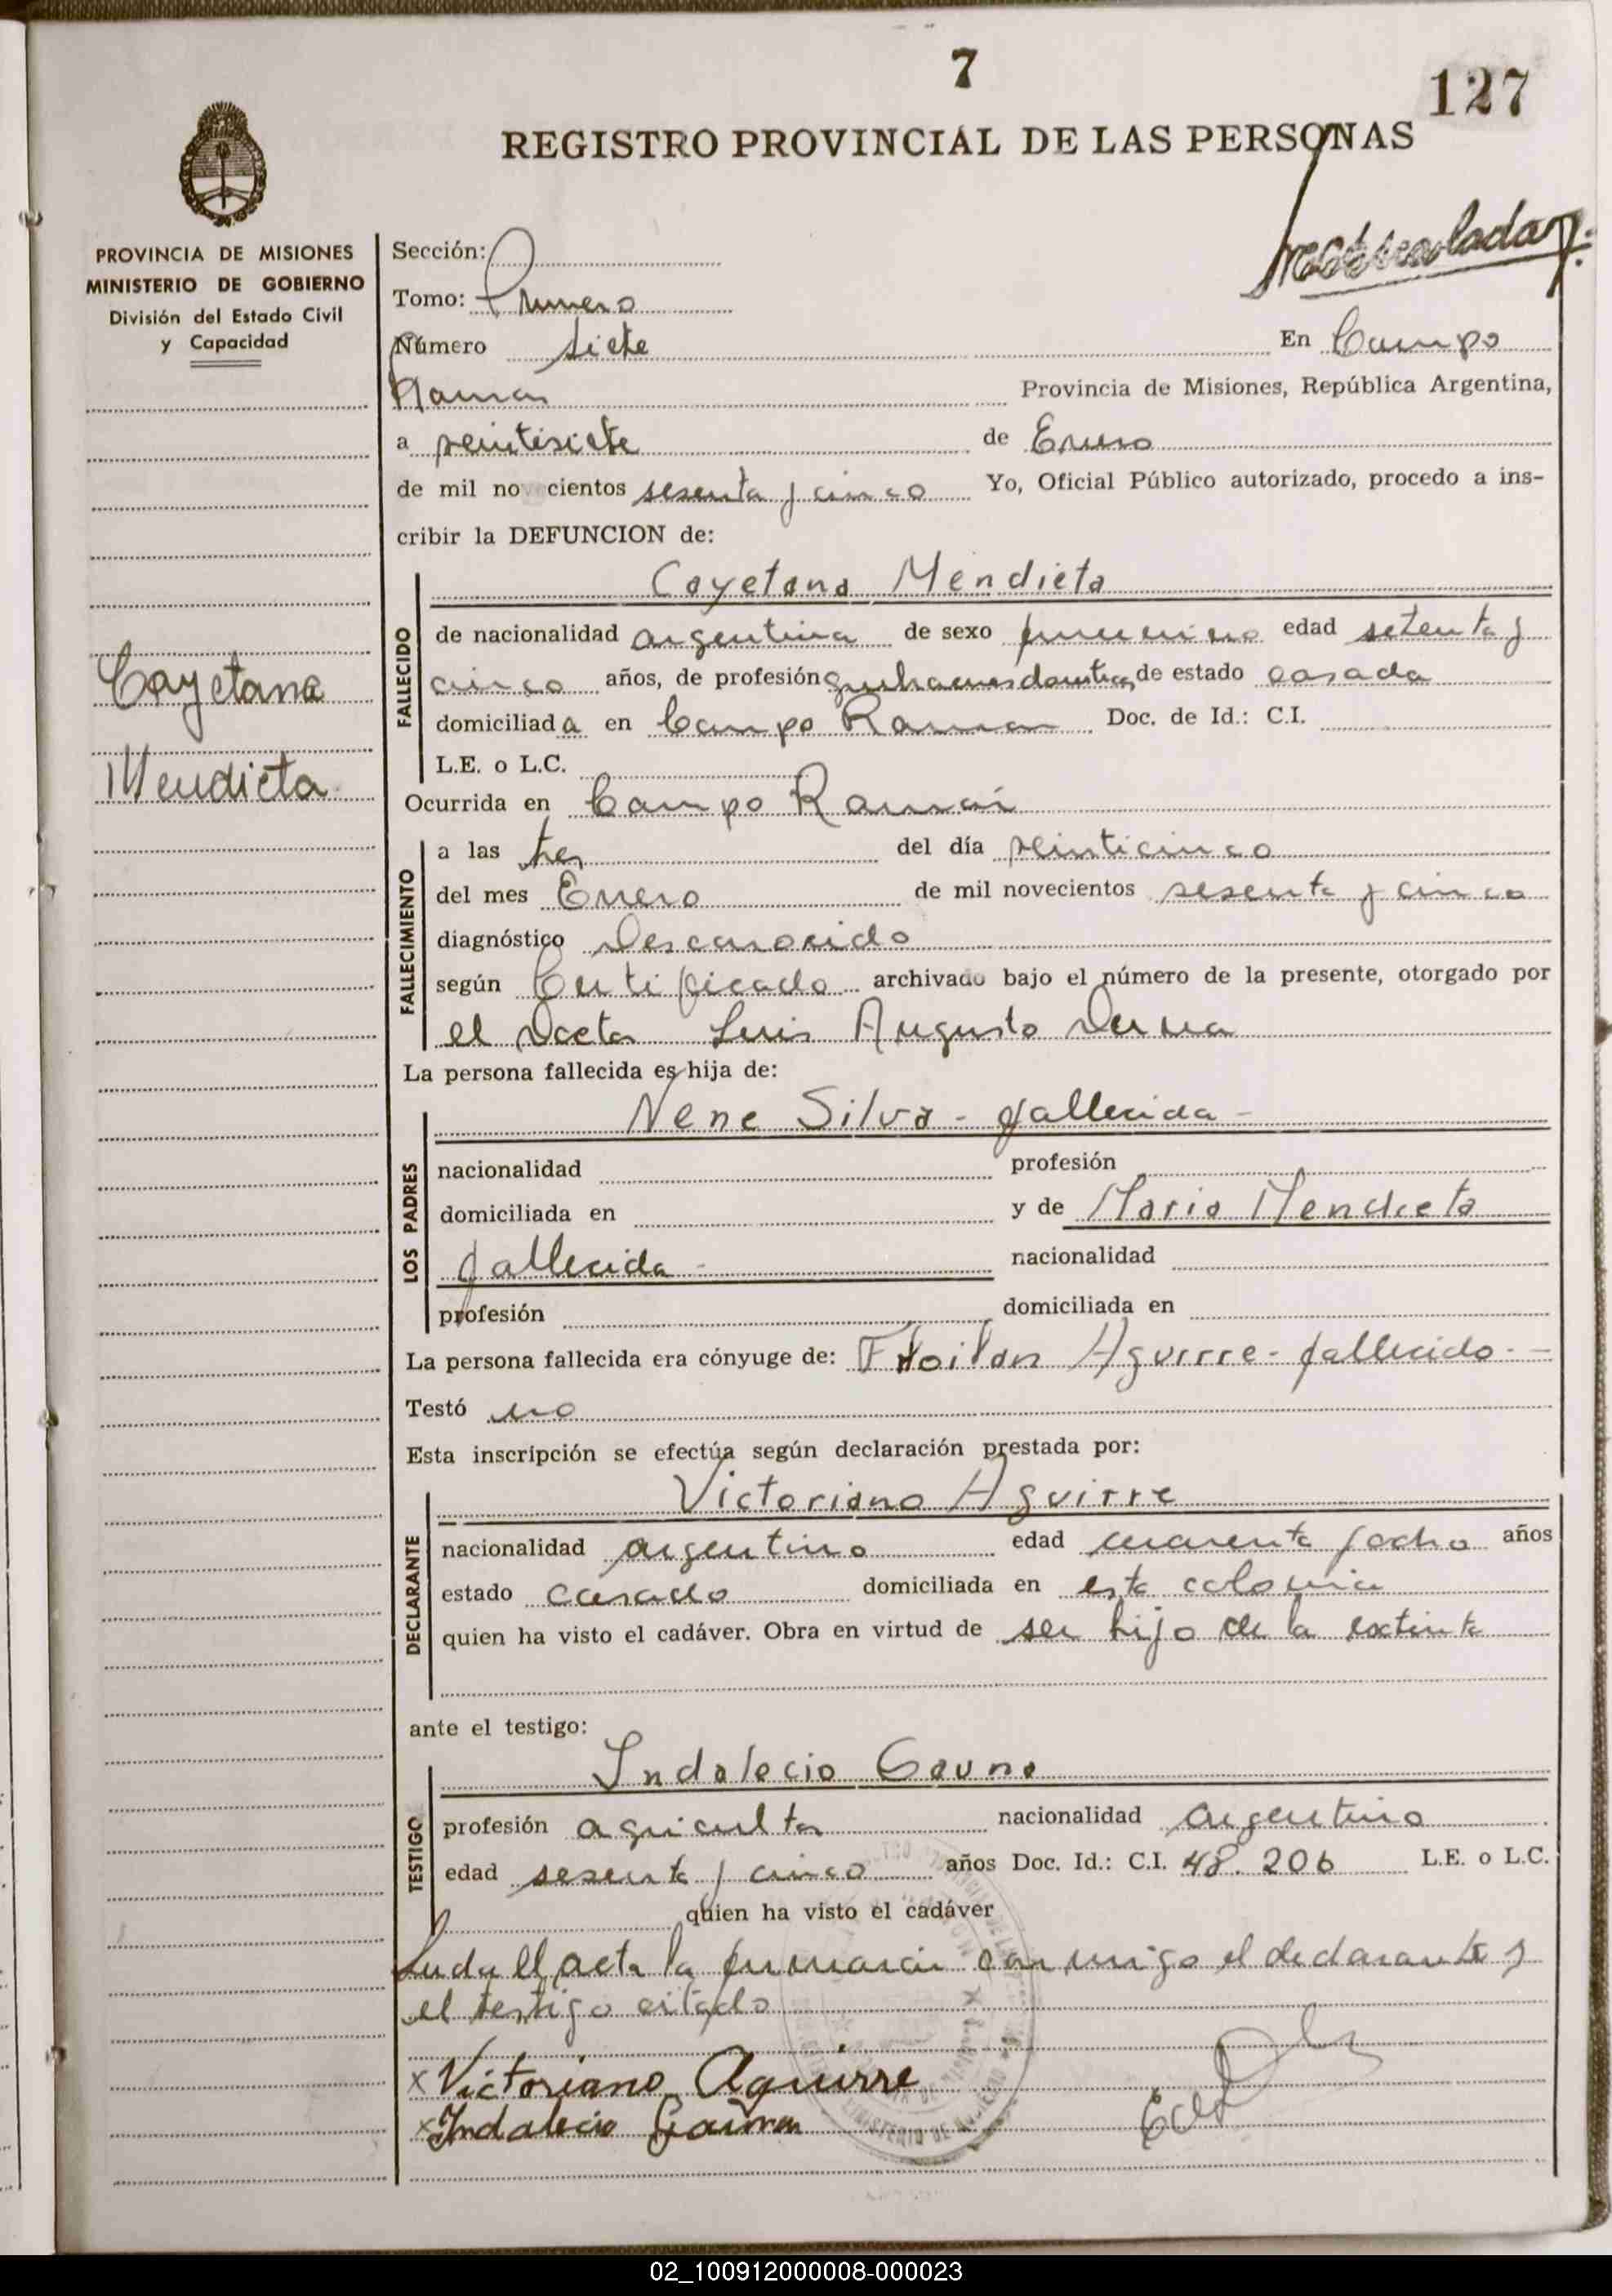 7
127
REGISTRO PROVINCIAL DE LAS PERSONAS
PROVINCIA DE MISIONES
MINISTERIO DE GOBIERNO
División del Estado Civil
y Capacidad
Cayetana
Mendieta
Sección:
Tomo: Primero
Número siete En Campo
Ramon Provincia de Misiones, República Argentina,
a veintisiete de Enero
de mil novecientos sesenta y cinco Yo, Oficial Público autorizado, procedo a ins-
cribir la DEFUNCION de:
Cayetana Mendieta
FALLECIDO
de nacionalidad argentina de sexo femenino edad setenta y
cinco años, de profesión de estado casada
domiciliada en Campo Ramon Doc. de Id.: C.I.
L.E. o L.C.
Ocurrida en Campo Ramón
FALLECIMIENTO
a las tres del día veinticinco
del mes Enero de mil novecientos sesenta y cinco
diagnóstico Desconocido
según Certificado archivado bajo el número de la presente, otorgado por
el Doctor Luis Augusto
La persona fallecida es hija de:
Nene Silva - fallecida -
LOS PADRES
nacionalidad profesión
domiciliada en y de Maria Mendieta
fallecida - nacionalidad
profesión domiciliada en
La persona fallecida era cónyuge de: Froilan Aguirre - fallecido - -
Testó no
Esta inscripción se efectúa según declaración prestada por:
Victoriano Aguirre
DECLARANTE
nacionalidad argentino edad cuarenta y ocho años
estado casado domiciliada en esta colonia
quien ha visto el cadáver. Obra en virtud de ser hijo de la extinta
ante el testigo:
Indalecio Gauna
TESTIGO
profesión agricultor nacionalidad argentino
edad sesenta y cinco años Doc. Id.: C.I. 48.206 L.E. o L.C.
quien ha visto el cadáver
Leida el acta la firmaron conmigo el declarante y
el testigo citado
x Victoriano Aguirre
x Indalecio Gauna
02_100912000008-000023